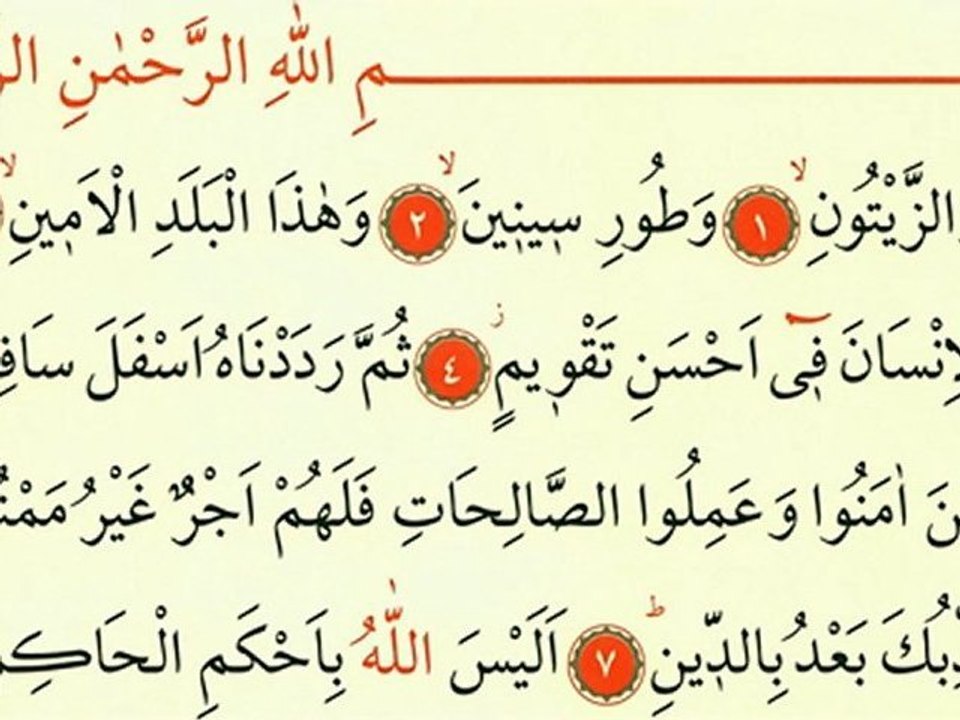 مِ اللّٰهِ الرَّحْمٰنِ
الزَّيْتُونِۙ ١ وَطُورِ سٖينٖينَۙ ٢ وَهٰذَا الْبَلَدِ الْاَمٖينِۙ
لْاِنْسَانَ فٖٓى اَحْسَنِ تَقْوٖيمٍؗ ٤ ثُمَّ رَدَدْنَاهُ اَسْفَلَ سَافِ
ينَ اٰمَنُوا وَعَمِلُوا الصَّالِحَاتِ فَلَهُمْ اَجْرٌ غَيْرُ مَمْنُ
ذِّبُكَ بَعْدُ بِالدّٖينِؕ ٧ اَلَيْسَ اللّٰهُ بِاَحْكَمِ الْحَاكِمٖ